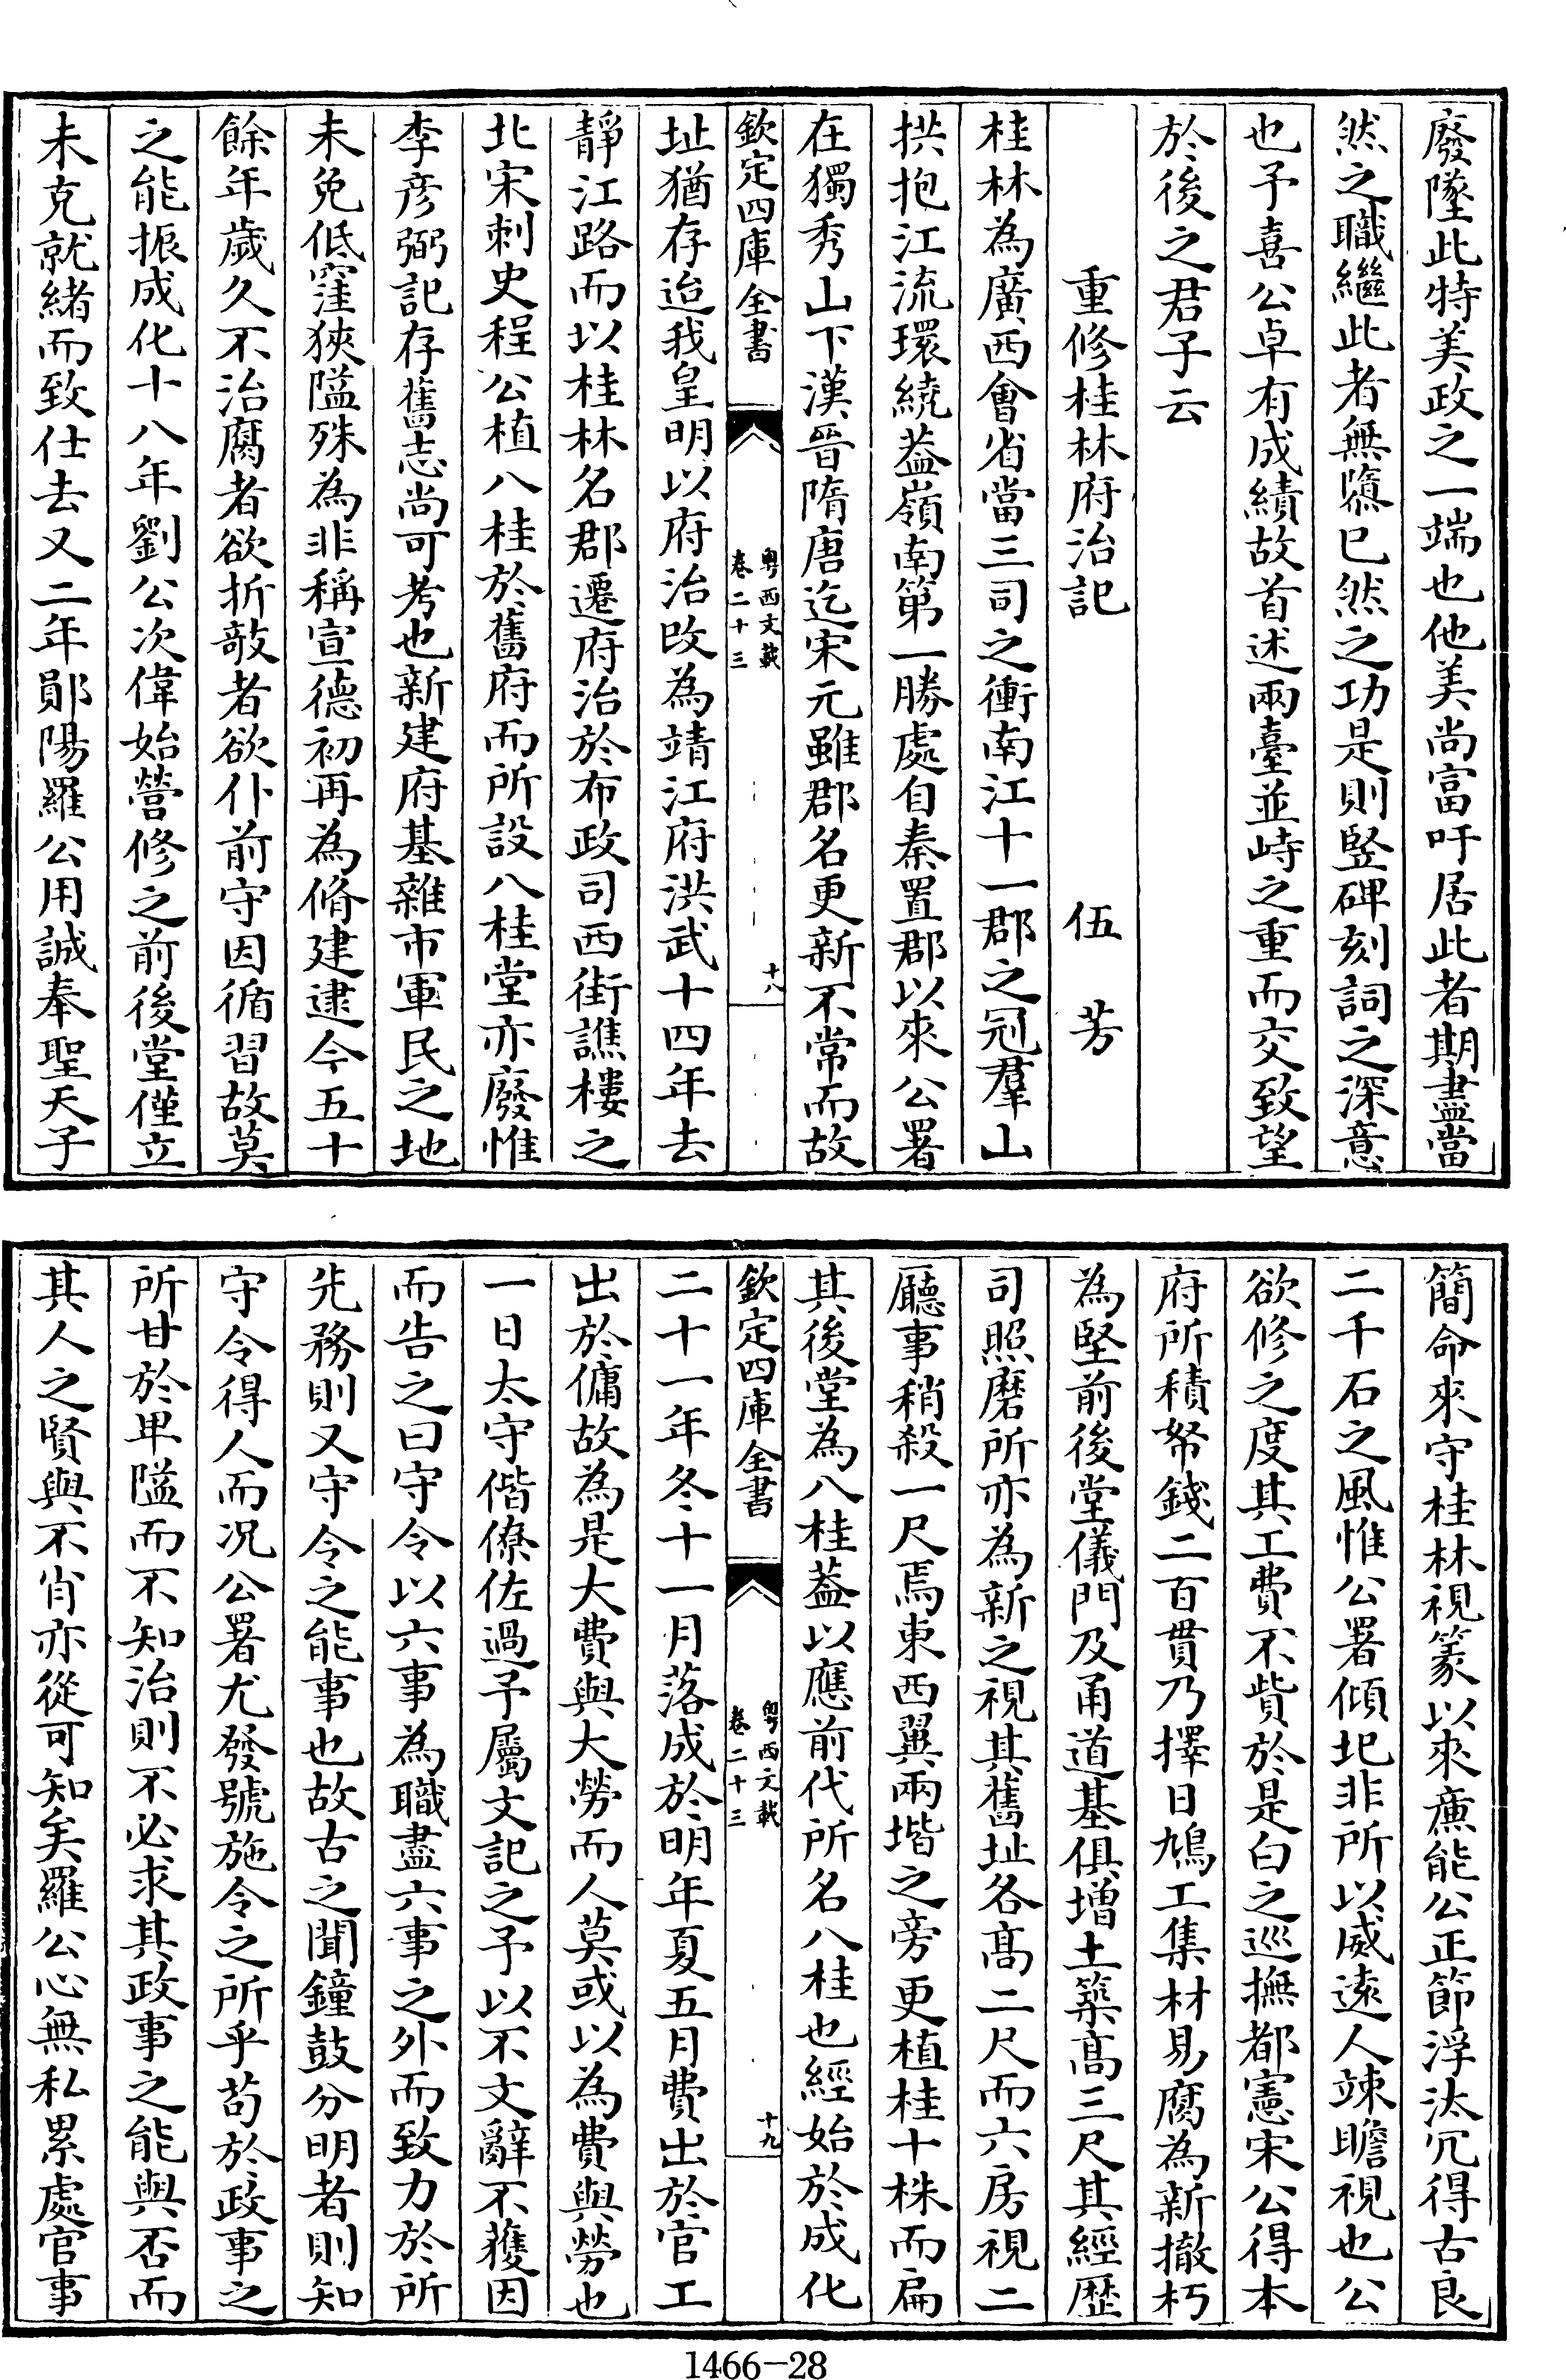 廢墜此特美政之一端也他美尚富吁居此者期盡當
然之職繼此者無隳已然之功是則竪碑刻詞之深意
也予喜公卓有成績故首述兩臺並峙之重而交致望
於後之君子云
重修桂林府治記 伍芳
桂林為廣西會省當三司之衝南江十一郡之冠羣山
拱抱江流環繞葢嶺南第一勝處自秦置郡以來公署
在獨秀山下漢晉隋唐迄宋元雖郡名更新不常而故
欽定四庫全書 粤西文載 卷二十三 十八
址猶存迨我皇明以府治改為靖江府洪武十四年去
靜江路而以桂林名郡遷府治於布政司西街譙樓之
北宋刺史程公植八桂於舊府而所設八桂堂亦廢惟
李彦弼記存舊志尚可考也新建府基雜市軍民之地
未免低窪狹隘殊為非稱宣德初再為脩建逮今五十
餘年歲久不治腐者欲折敧者欲仆前守因循習故莫
之能振成化十八年劉公次偉始營修之前後堂僅立
未克就緒而致仕去又二年鄖陽羅公用誠奉聖天子
簡命來守桂林視篆以來亷能公正節浮汰冗得古良
二千石之風惟公署傾圯非所以威遠人竦瞻視也公
欲修之度其工費不貲於是白之巡撫都憲宋公得本
府所積帑錢二百貫乃擇日鳩工集材易腐為新撤朽
為堅前後堂儀門及甬道基俱增土築髙三尺其經歷
司照磨所亦為新之視其舊址各髙二尺而六房視二
廳事稍殺一尺焉東西翼兩堦之旁更植桂十株而扁
其後堂為八桂葢以應前代所名八桂也經始於成化
欽定四庫全書 粤西文載 卷二十三 十九
二十一年冬十一月落成於明年夏五月費出於官工
出於傭故為是大費與大勞而人莫或以為費與勞也
一日太守偕僚佐過予屬文記之予以不文辭不獲因
而告之曰守令以六事為職盡六事之外而致力於所
先務則又守令之能事也故古之聞鐘鼓分明者則知
守令得人而况公署尤發號施令之所乎苟於政事之
所甘於卑隘而不知治則不必求其政事之能與否而
其人之賢與不肖亦從可知矣羅公心無私累處官事
1466-28